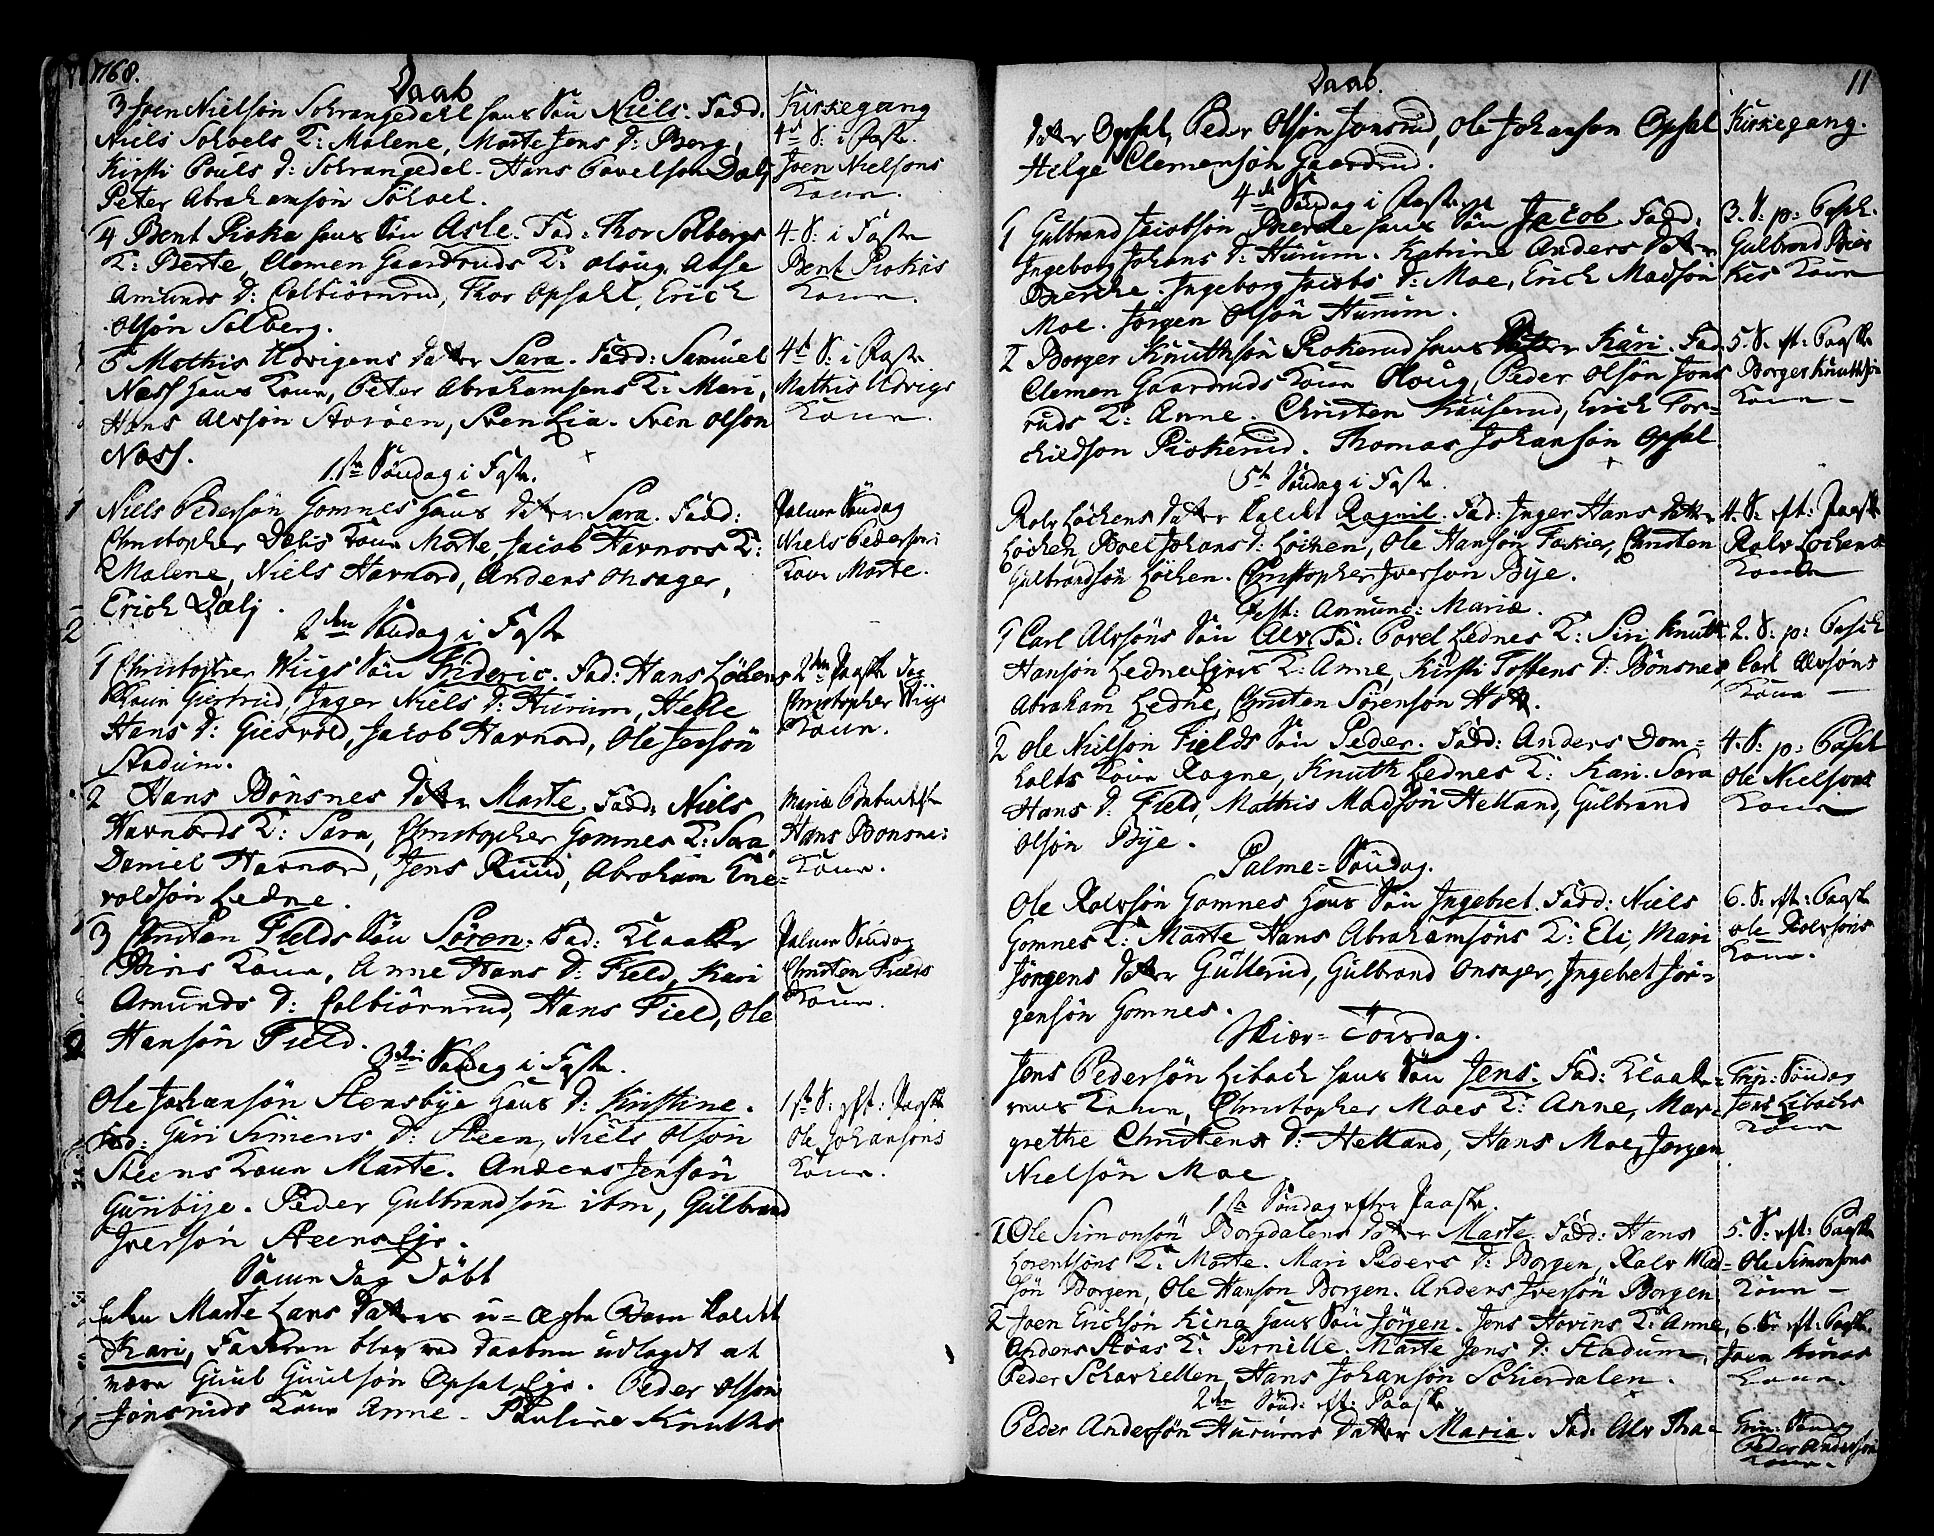 1768.
Daab
3 Joen Nielsøn Schrangedahl hans Søn Niels. Fadd:
Niels Schoels K: Malene, Marte Jens D: Berg,
Kirsti Pouls D: Schrangedal. Hans Povelsøn Dalj
Peter Abrahamsøn Schoel.
4 Bent Piokes hans Søn Asle. Fad: Thor Solbergs
K: Berte, Clemen Gaardruds K: Oloug, Aase
Amunds D: Colbiørnrud, Thor Opsahl, Erich
Olsøn Solberg.
5 Mathis Udvigens Datter Sara. Fadd: Samuel
Næss hans Kone, Peter Abrahamsens K: Mari,
Hans Alvsøn Storøen, Sven Lia. Sven Olsøn
Næss.
1ste Søndag i Faste.
1 Niels Pedersøn Gomnes hans Datter Sara. Fadd:
Christopher Daljs Kone Marte, Jacob Havnors K:
Malene, Niels Havnord, Anders Onsager,
Erich Dalj.
2den Søndag i Faste
1 Christopher Wiigs Søn Frideric. Fad: Hans Løkens
Kone Giertrud, Inger Niels D: Hurum, Helle
Hans D: Giesvold, Jacob Havnord, Ole Jensøn
Stadum.
2 Hans Bønsnes Datter Marte. Fadd: Niels
Havnords K: Sara, Christopher Gomnes K: Sara
Daniel Havnord, Jens Ruud, Abraham Ene-
voldsøn Ledne.
3 Christen Fields Søn Søren. Fad: Klaakke-
rens Kone, Anne Hans D: Field, Kari
Amunds D: Colbiørnrud, Hans Field, Ole
Hansøn Field.
3die Søndag i Faste.
Ole Johansøn Stensbye hans D: Kirstine.
Fad: Guri Simens D: Steen, Niels Olsøn
Steens Kone Marte. Anders Jensøn
Guribye. Peder Gulbrandsøn ibm, Gulbrand
Iversøn Steens Eje.
Samme Dag døbt
Enken Marte Lars Datters u-ægte Barn kaldet
Kari, Faderen blev ved Daaben udlagt at
være Guul Guulsøn Opsal Eje. Peder Olsøn
Jonsruds Kone Anne. Pauline Knuths
Kirkegang
4de S: i Faste.
Joen Nielsøns
Kone.
4. S: i Faste
Bent Piokes
Kone.
4de S: i Faste
Mathis Udvigs
Kone.
Palme Søndag
Niels Pedersøns
Kone Marte.
2den Paaske Dag
Christopher Wiigs
Kone.
Mariæ Bebudelse
Hans Bønsnes
Kone.
Palme Søndag
Christen Fields
Kone.
1ste S: eft: Paaske
Ole Johansøns
Kone.
11
Daab.
Datter Opsal, Peder Olsøn Jonsrud, Ole Johansøn Opsal
Helge Clemensøn Gaardrud.
4de Søndag i Faste
1 Gulbrand Jacobsøn Bierke hans Søn Jacob. Fadd:
Ingeborg Johans D: Hurum. Katrine Anders Datter
Bierche. Ingeborg Jacobs D: Moe, Erich Madsøn
Moe. Jørgen Olsøn Hurum.
2 Borger Knuthsøn Piokerud hans Datter Kari. Fad.
Clemen Gaardruds Kone Oloug, Peder Olsøn Jons-
ruds K: Anne. Christen Knuserud, Erich Tor-
chieldson Piokerud. Thomas Johansøn Opsal
5te Søndag i Faste.
Rolv Løchens Datter kaldet Ragnil. Fad: Inger Hans Datter
Løchen, Boel Johans D: Løchen, Ole Hansøn Faskier, Christen
Gulbrandsøn Løchen. Christopher Iversøn Bye.
Fest: Annunc: Mariæ.
1 Carl Alvsøns Søn Alv. Fad: Povel Lednes K: Siri, Knuth
Hansøn Ledne Ejes K: Anne, Kirsti Tostens D: Bønsnes,
Abraham Ledne, Christen Sørensøn Hatt.
2 Ole Nielsøn Fields Søn Peder. Fadd: Anders Dom-
holts Kone Ragne, Knuth Lednes K: Kari. Sara
Hans D: Field, Mathis Madsøn Helland, Gulbrand
Olsøn Bye.
Palme-Søndag.
Ole Rolvsøn Gomnes hans Søn Ingebret. Fadd: Niels
Gomnes K: Marte, Hans Abrahamsøns K: Eli, Mari
Jørgens Datter Gullerud, Gulbrand Onsager, Ingebret Jør-
gensøn Gomnes.
Skiær-Torsdag.
Jens Pedersøn Libach hans Søn Jens. Fad: Klaakke-
rens Kone, Christopher Moes K: Anne, Mar-
grethe Christens D: Helland, Hans Moe, Jørgen
Nielsøn Moe
1ste Søndag efter Paaske.
1 Ole Simonsøn Borgdalens Datter Marte. Fadd: Hans
Lorentsøns K: Marte. Mari Peders D: Borgen, Rolv Mad-
søn Borgen, Ole Hansøn Borgen. Anders Iversøn Borgen
2 Joen Erichsøn King hans Søn Jørgen. Jens Hovins K: Anne,
Anders Støas K: Pernille. Marte Jens D: Stadum,
Peder Scharhellen, Hans Johansøn Schierdalen.
2den Sønd: eft: Paaske
Peder Andersøn Hurums Datter Maria. Fad: Alv Tha-
Kirkegang.
3. S: p: Pasch.
Gulbrand Bier
kes Kone
5. S. eft: Paaske
Borger Knuthsøns
Kone
4. S: eft: Paaske
Rolv Løchens
Kone
2. S: p: Pasch
Carl Alvsøns
Kone
4. S: p: Pasch
Ole Nielsøns
Kone
6. S: eft: Paaske
Ole Rolvsøns
Kone.
Trin: Søndag
Jens Libachs
Kone
5. S: eft: Paaske
Ole Simonsøns
Kone
6. S: eft: Paaske.
Joen Kings
Kone.
Trin: Sønd
Peder Andersøns
Kone.